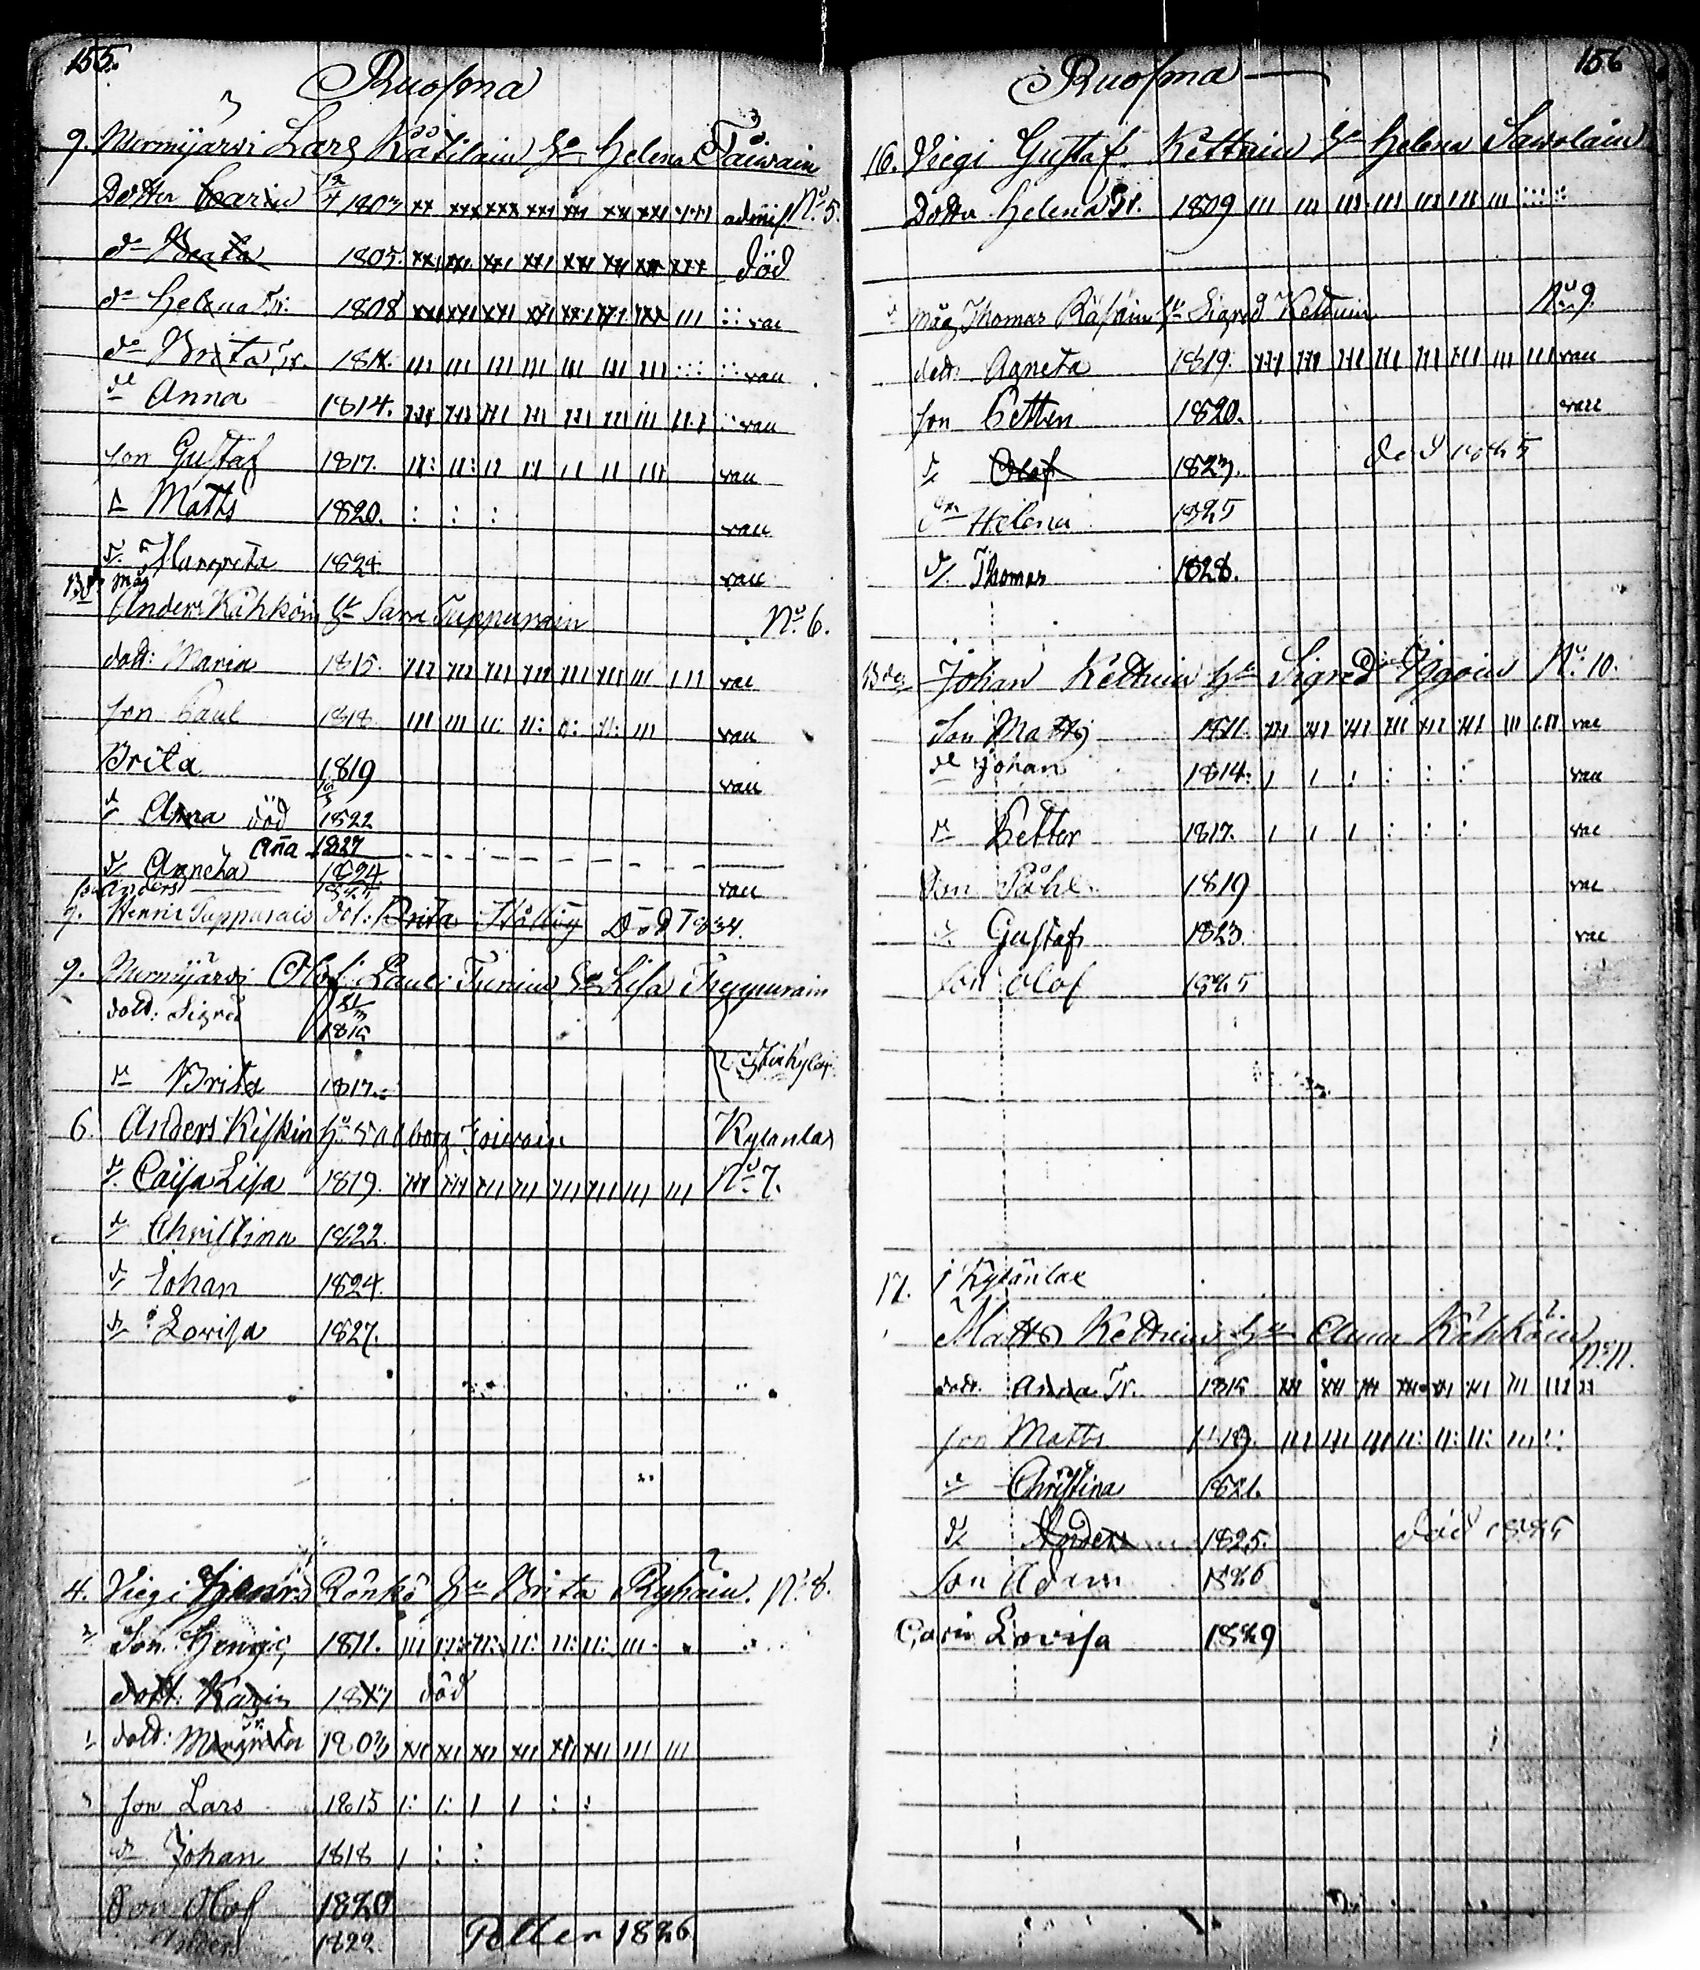 155.
Ruosma
9. Murmijärvi Lars Kåtilain Hu Helena Taiwain
Dotter Carin 12/4 1803 admiss No 5.
do Beata 1805 död
do Helena Tr: 1808 vac
do Brita Tr. 1811. vac
do Anna 1814. vac
son Gustaf 1817. vac
do Matts 1820. vac
do Margreta 1824 vac
Bdr Måg
Anders Kåhköin Hu Sara Tuppurain No 6.
dott: Maria 1815. vac
son Paul 1818 vac
Brita 1819 vac
do Anna död 1822
Aña 1827
do Agneta 1824 vac
son Anders
9. Henric Tuppurais dot: Brita Död 1834.
9. Murmijärvi Olof Turuin Hu Lisa Tuppurain
dott: Sigrid 1815
do Brita 1817.
6. Anders Kiskin Hu Walborg Toivain Kylanlax
do Caisa Lisa 1819. No 7.
do Christina 1822.
do Johan 1824.
do Lovisa 1827.
4. Viegi Henric Rönkö Hu Brita Ryhäin. No 8.
Son Henric 1811.
dott: Karin 1813 död
dott: Margreta Tr. 1803
son Lars 1815
do Johan 1818
Son Olof 1820
Anders 1822 Petter 1826
156
Ruosma
16. Viegi Gustaf Kettuin Hu Helena Sawolain
Dotter Helena Tr. 1809
Måg Thomas Räisäin Hu Sigrid Kettuin No 9.
dott: Agneta 1819. vac
son Petter 1820. vac
do Olof 1823. död 1825
dr Helena 1825
do Thomas 1828.
Bdr Johan Kettuin Hu Sigrid No 10.
Son Matts 1811. vac
do Johan 1814. vac
do Petter 1817. vac
Son Påhl 1819 vac
do Gustaf 1823 vac
son Olof 1825
17. i Kylänlax
Matts Kettuin Hu Anna Kåhköin No 11.
dott. Anna Tr. 1815
son Matts 1819.
do Christina 1821.
do Anders 1825. död 1825
Son Adam 1826
Carin Lovisa 1829